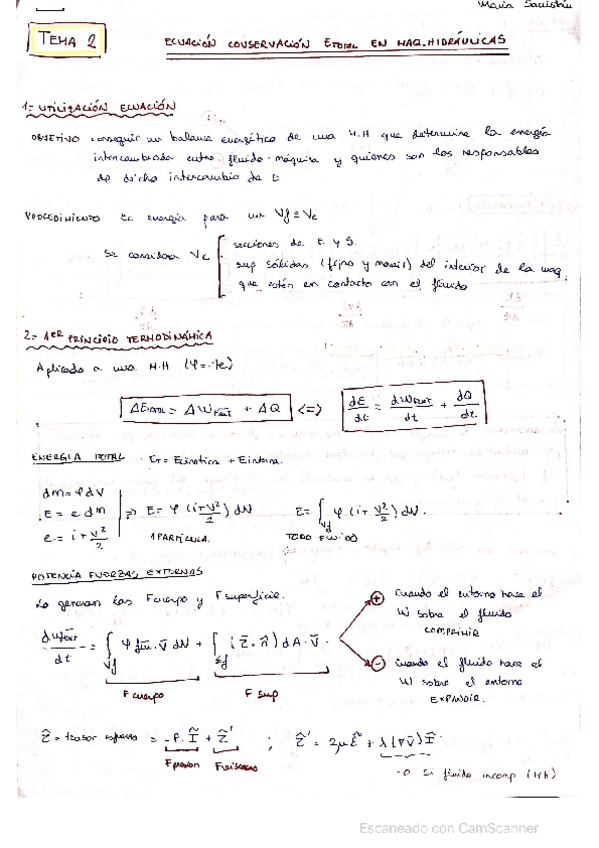 TEMA 2
ECUACIÓN CONSERVACIÓN ETOTAL EN MAQ. HIDRÁULICAS
1= UTILIZACIÓN ECUACIÓN
OBJETIVO conseguir un balance energético de una M.H que determine la energía
intercambiada entre fluido-máquina y quienes son los responsables
de dicho intercambio de E
PROCEDIMIENTO Ec energía para un Vf = Vc
se considera Vc
secciones de E y S.
sup sólidas (fijas y movil) del interior de la maq
que estén en contacto con el fluido
2= 1ER PRINCIPIO TERMODINÁMICA
Aplicado a una M.H (φ = te)
ΔETOTAL = ΔWFEXT + ΔQ <=> dE/dt = dWFEXT/dt + dQ/dt
ENERGÍA TOTAL · ET = Ecinetica + Einterna.
dm = φdV
E = e dm => E = φ (i + v²/2) dV E = ∫Vf φ (i + v²/2) dV.
e = i + v²/2 1 PARTÍCULA. TODO FLUIDO
POTENCIA FUERZAS EXTERNAS
Lo generan las Fcuerpo y Fsuperficie.
dWFext/dt = ∫Vf φ f̄m · v̄ dV + ∫Sf (τ̄ · n̄) dA · v̄
F cuerpo F sup
+ Cuando el entorno hace el
W sobre el fluido
COMPRIMIR
- Cuando el fluido hace el
W sobre el entorno
EXPANDIR.
= tensor esfuerzo = -P. Ĩ + τ̃' ; τ̃' = 2μĒ + λ(∇v̄) Ĩ
Fpresion Fviscosas
0 si fluido incomp (MH)
Escaneado con CamScanner